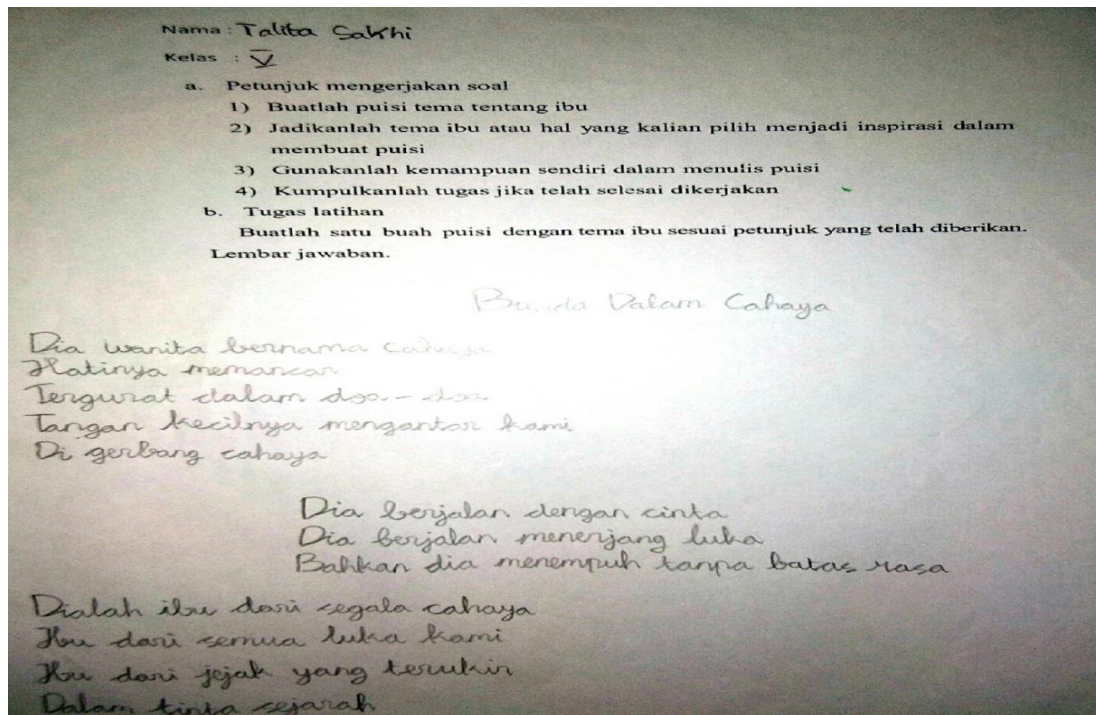 Nama : Talita Sakhi
Kelas : V
a. Petunjuk mengerjakan soal
1) Buatlah puisi tema tentang ibu
2) Jadikanlah tema ibu atau hal yang kalian pilih menjadi inspirasi dalam
membuat puisi
3) Gunakanlah kemampuan sendiri dalam menulis puisi
4) Kumpulkanlah tugas jika telah selesai dikerjakan
b. Tugas latihan
Buatlah satu buah puisi dengan tema ibu sesuai petunjuk yang telah diberikan.
Lembar jawaban.
Bunda Dalam Cahaya
Dia wanita bernama cahaya
Hatinya memancar
Tergurat dalam doa-doa
Tangan kecilnya mengantar kami
Di gerbang cahaya
Dia berjalan dengan cinta
Dia berjalan menerjang luka
Bahkan dia menempuh tanpa batas rasa
Dialah ibu dari segala cahaya
Ibu dari semua luka kami
Ibu dari jejak yang terukir
Dalam tinta sejarah